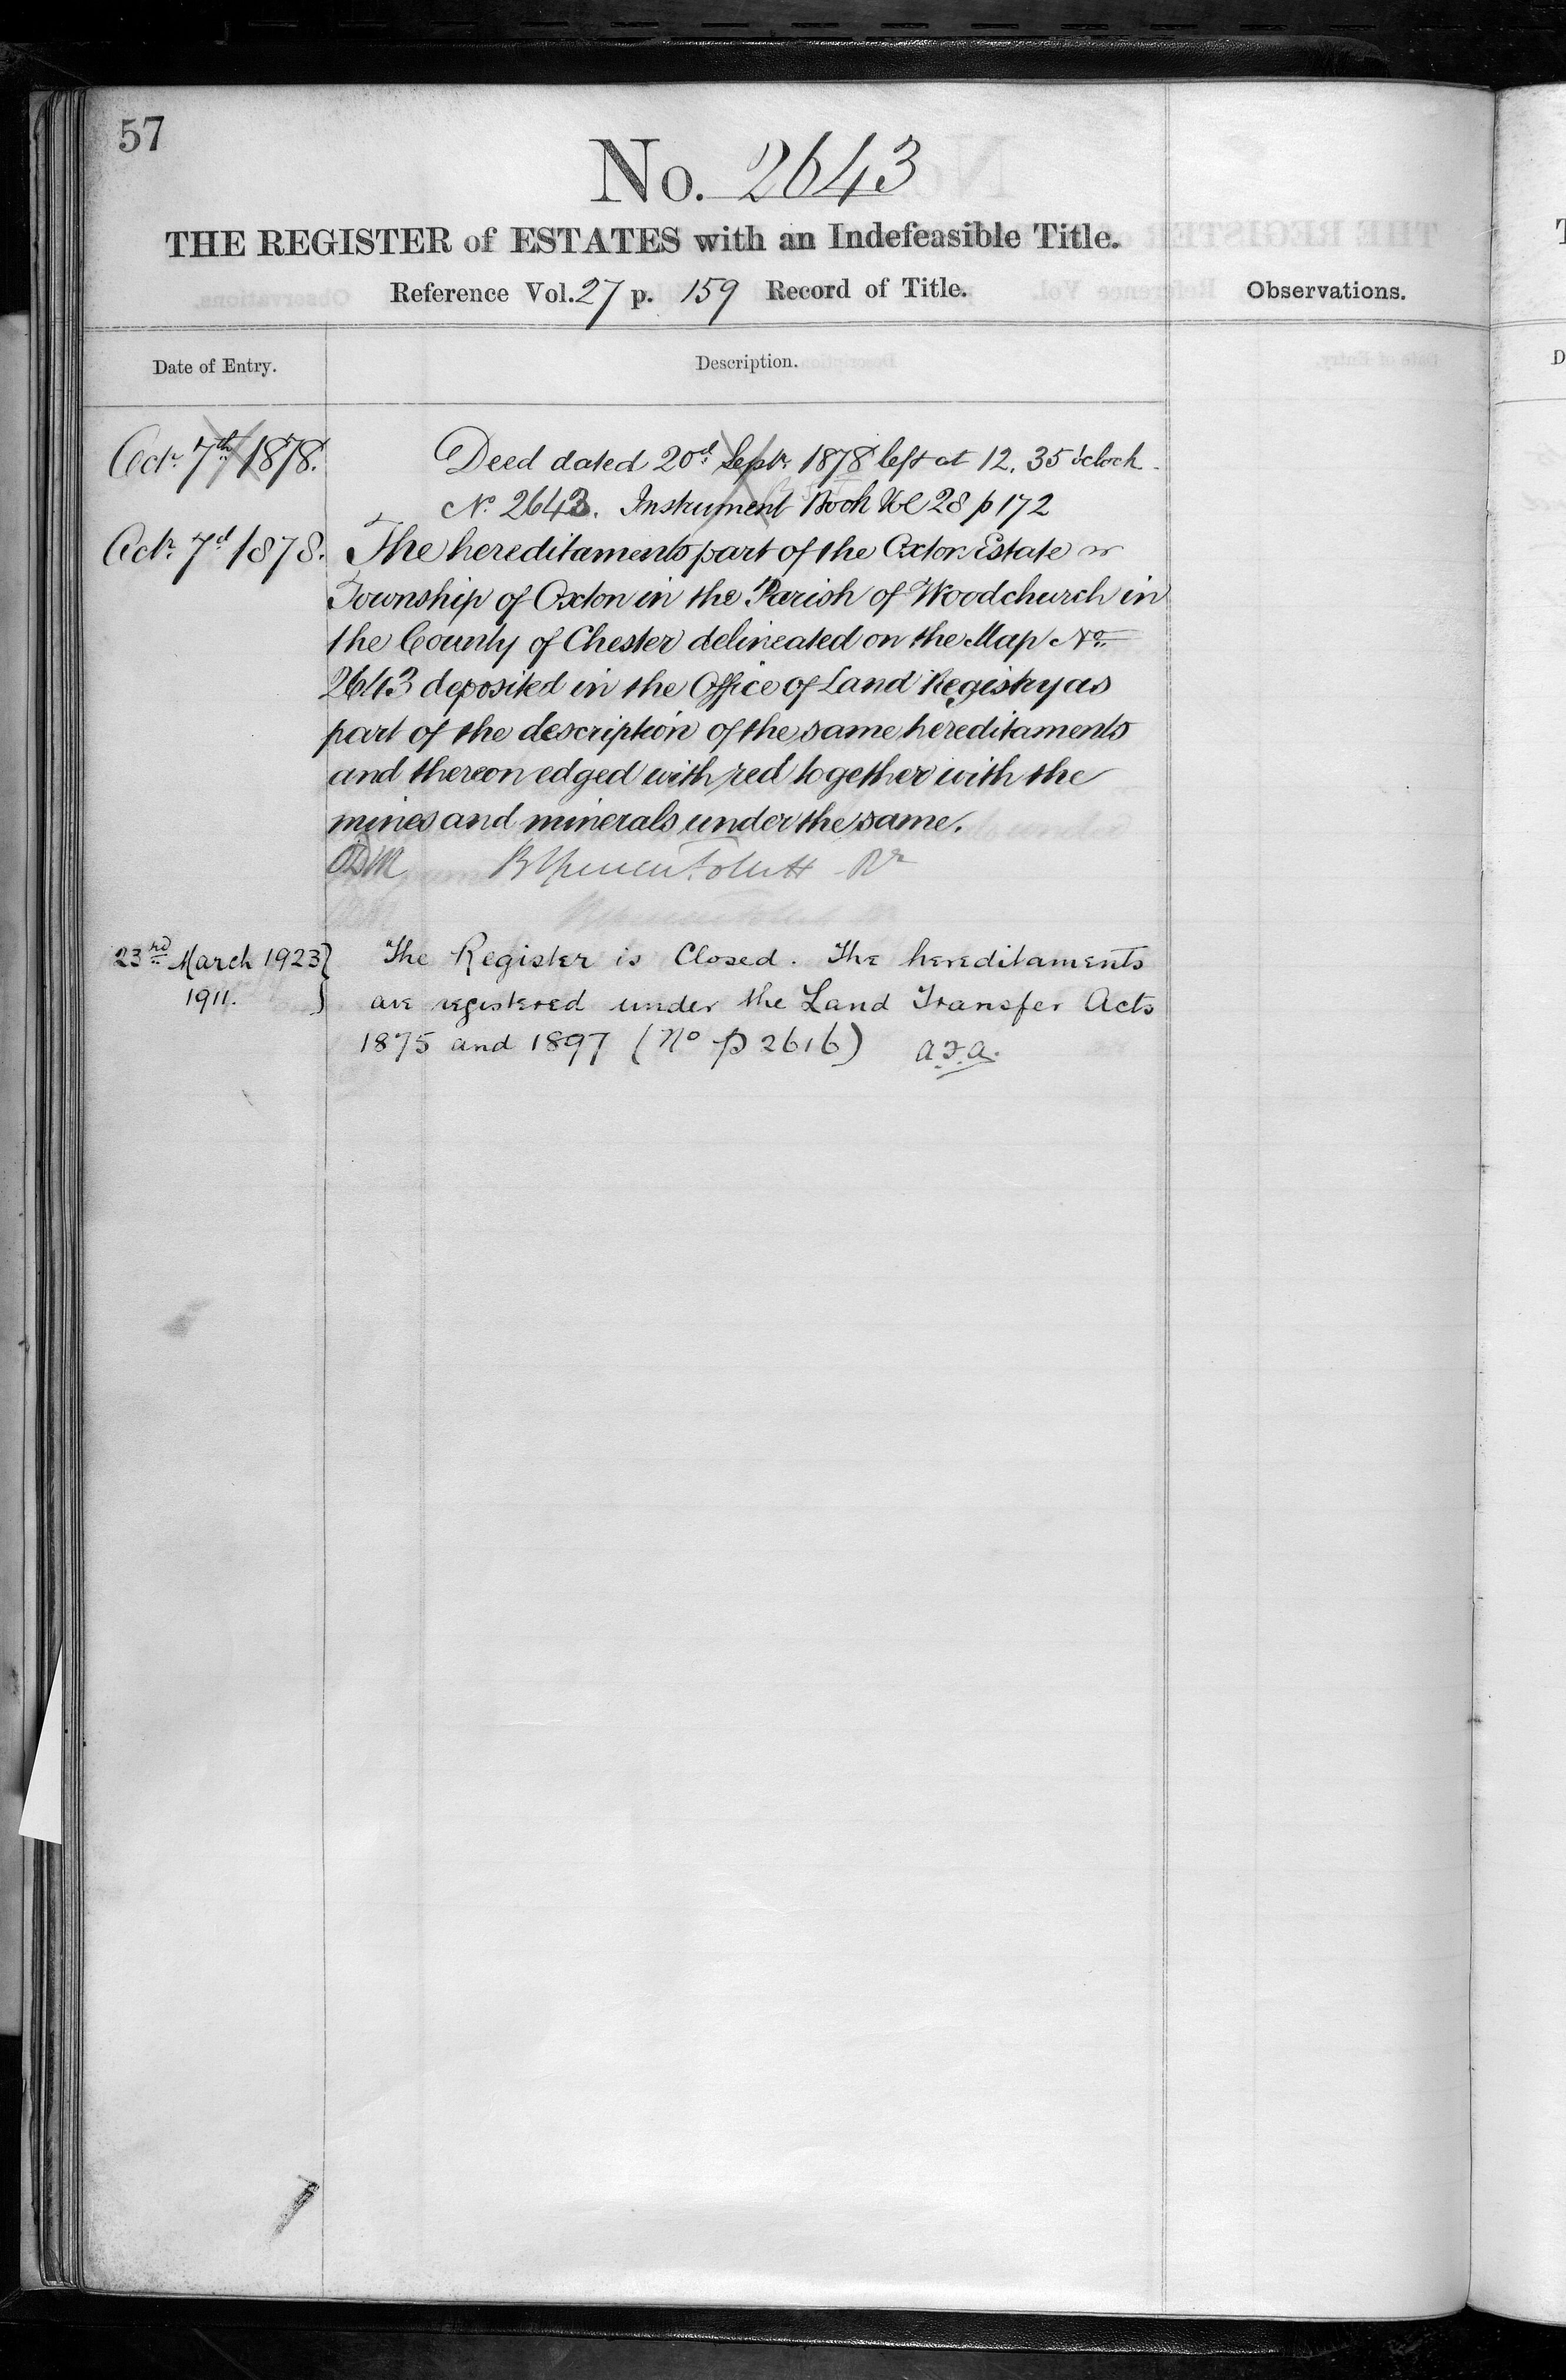 57
No. 2643
THE REGISTER of ESTATES with an Indefeasible Title.
Reference Vol. 27 p. 159 Record of Title.
Observations.
Date of Entry.
Description.
Octr. 7th 1878.
Deed dated 20d. Septr. 1878 left at 12.35 o'clock
No. 2643. Instrument Book Vol 28 p 172
Octr. 7d 1878.
The hereditaments part of the Oxton Estate
Township of Oxton in the Parish of Woodchurch in
the County of Chester delineated on the Map No.
2643 deposited in the Office of Land Registry as
part of the description of the same hereditaments
and thereon edged with red together with the
mines and minerals under the same.
23rd March 1923
1911.
The Register is Closed. The hereditaments
are registered under the Land Transfer Acts
1875 and 1897 (No P 2616)